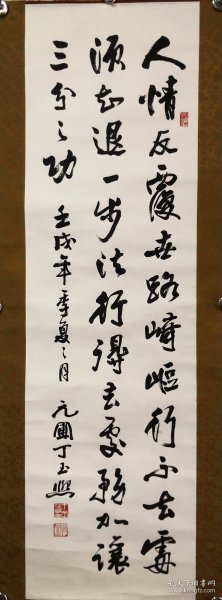 人情反覆世路崎嶇行不去處
須知退一步法行得去處務加讓
三分之功 壬戌年季夏之月 元圃丁玉熙